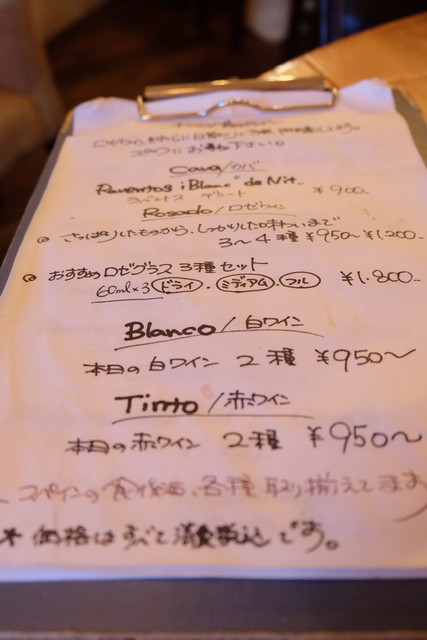 スタッフにお尋ね下さい。
Cava/カバ
Raventos i Blanc "de Nit"
ラベントス デ ニート ¥900-
Rosado/ロゼワイン
◎ さっぱりしたものから、しっかりした味わいまで
3〜4種 ¥950〜¥1.200-
◎ おすすめロゼグラス3種セット
60ml×3 ドライ・ミディアム・フル ¥1.800-
Blanco/白ワイン
本日の白ワイン 2種 ¥950〜
Tinto/赤ワイン
本日の赤ワイン 2種 ¥950〜
スペインの食後酒、各種取り揃えてます
* 価格はすべて消費税込です。